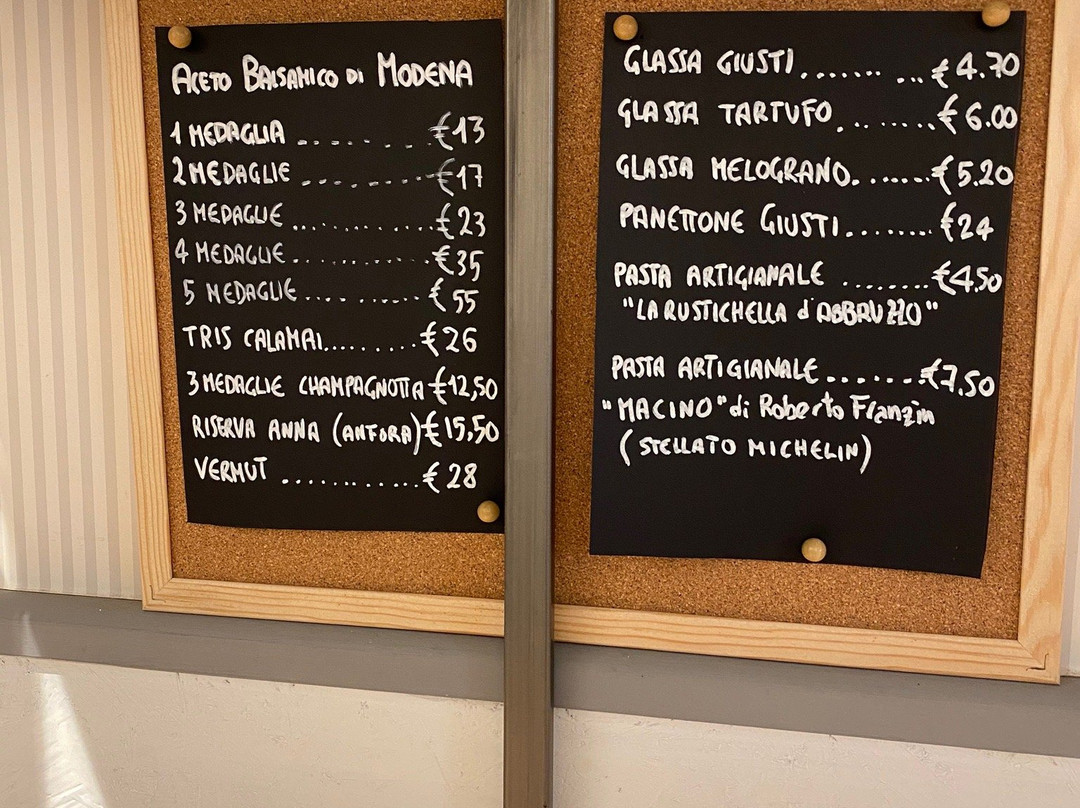 ACETO BALSAMICO DI MODENA
1 MEDAGLIA ........ €13
2 MEDAGLIE ........... €17
3 MEDAGLIE ............. €23
4 MEDAGLIE ............. €35
5 MEDAGLIE ............ €55
TRIS CALAMAI.......... €26
3 MEDAGLIE CHAMPAGNOTTA €12,50
RISERVA ANNA (ANFORA) €15,50
VERMUT ............ €28
GLASSA GIUSTI.......... €4.70
GLASSA TARTUFO......... €6.00
GLASSA MELOGRANO....... €5.20
PANETTONE GIUSTI........ €24
PASTA ARTIGIANALE ........ €4.50
"LA RUSTICHELLA d'ABBRUZZO"
PASTA ARTIGIANALE........ €7,50
"MACINO" di Roberto Franzin
(STELLATO MICHELIN)